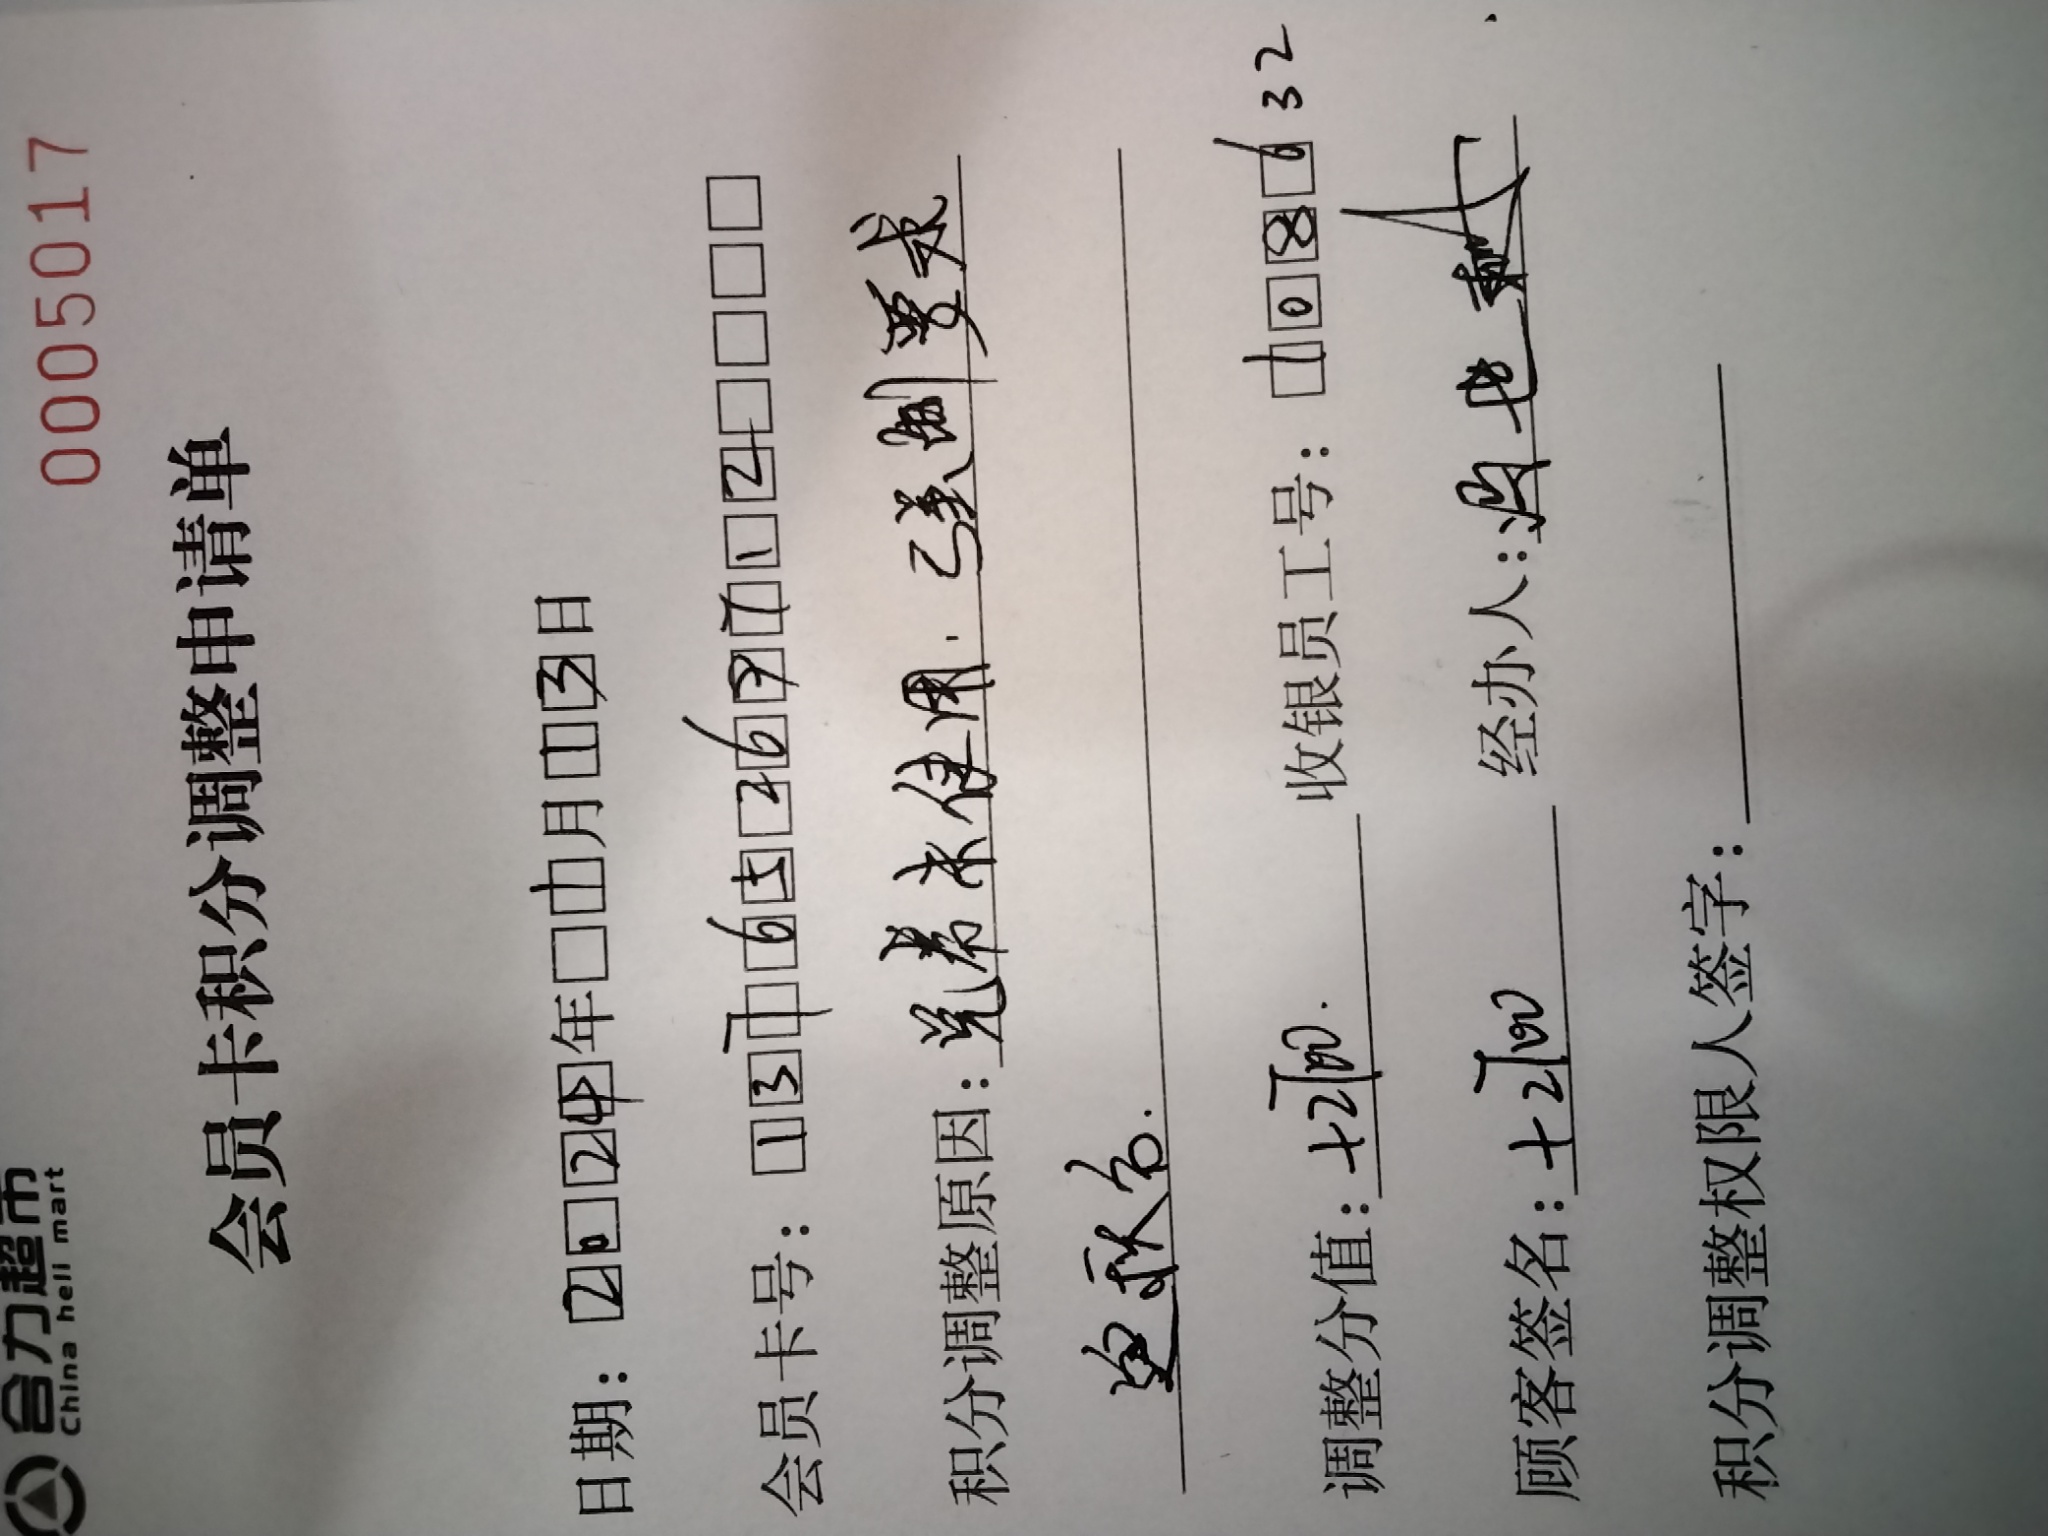 合力超市
China heli mart
0005017
会员卡积分调整申请单
日期：2024年1月13日
会员卡号：13765267712
积分调整原因：兑券未使用.已美团要求
调整分值：+2700. 收银员工号：108632
顾客签名：+2700 经办人：
积分调整权限人签字：